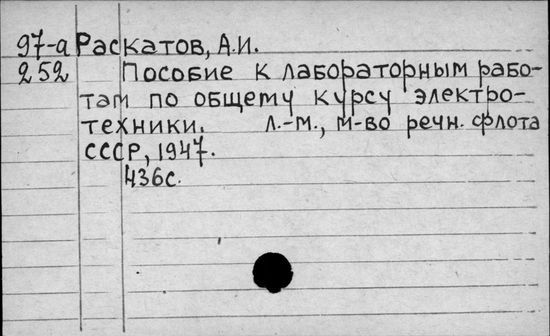 97-а Раскатов, А.И.
252 Пособие к лабораторным рабо-
там по общему курсу электро-
техники. Л.-М., М-во речн. флота
СССР, 1947.
436с.